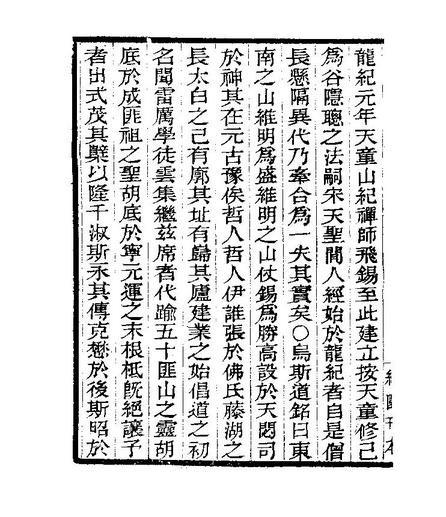 龍紀元年天童山紀禪師飛錫至此建立按天童修己
爲谷隱聰之法嗣宋天聖間人經始於龍紀者自是僧
長懸隔異代乃牽合爲一失其實矣○烏斯道銘曰東
南之山維明爲盛維明之山仗錫爲勝高設於天閟司
於神其在元古豫俟哲人哲人伊誰張於佛氏藤湖之
長太白之已有廓其址有歸其廬建業之始倡道之初
名聞雷厲學徒雲集繼茲席者代踰五十匪山之靈胡
底於成匪祖之聖胡底於寧元運之末根柢旣絕讓予
者出式茂其櫱以隆千淑斯永其傳克懋於後斯昭於